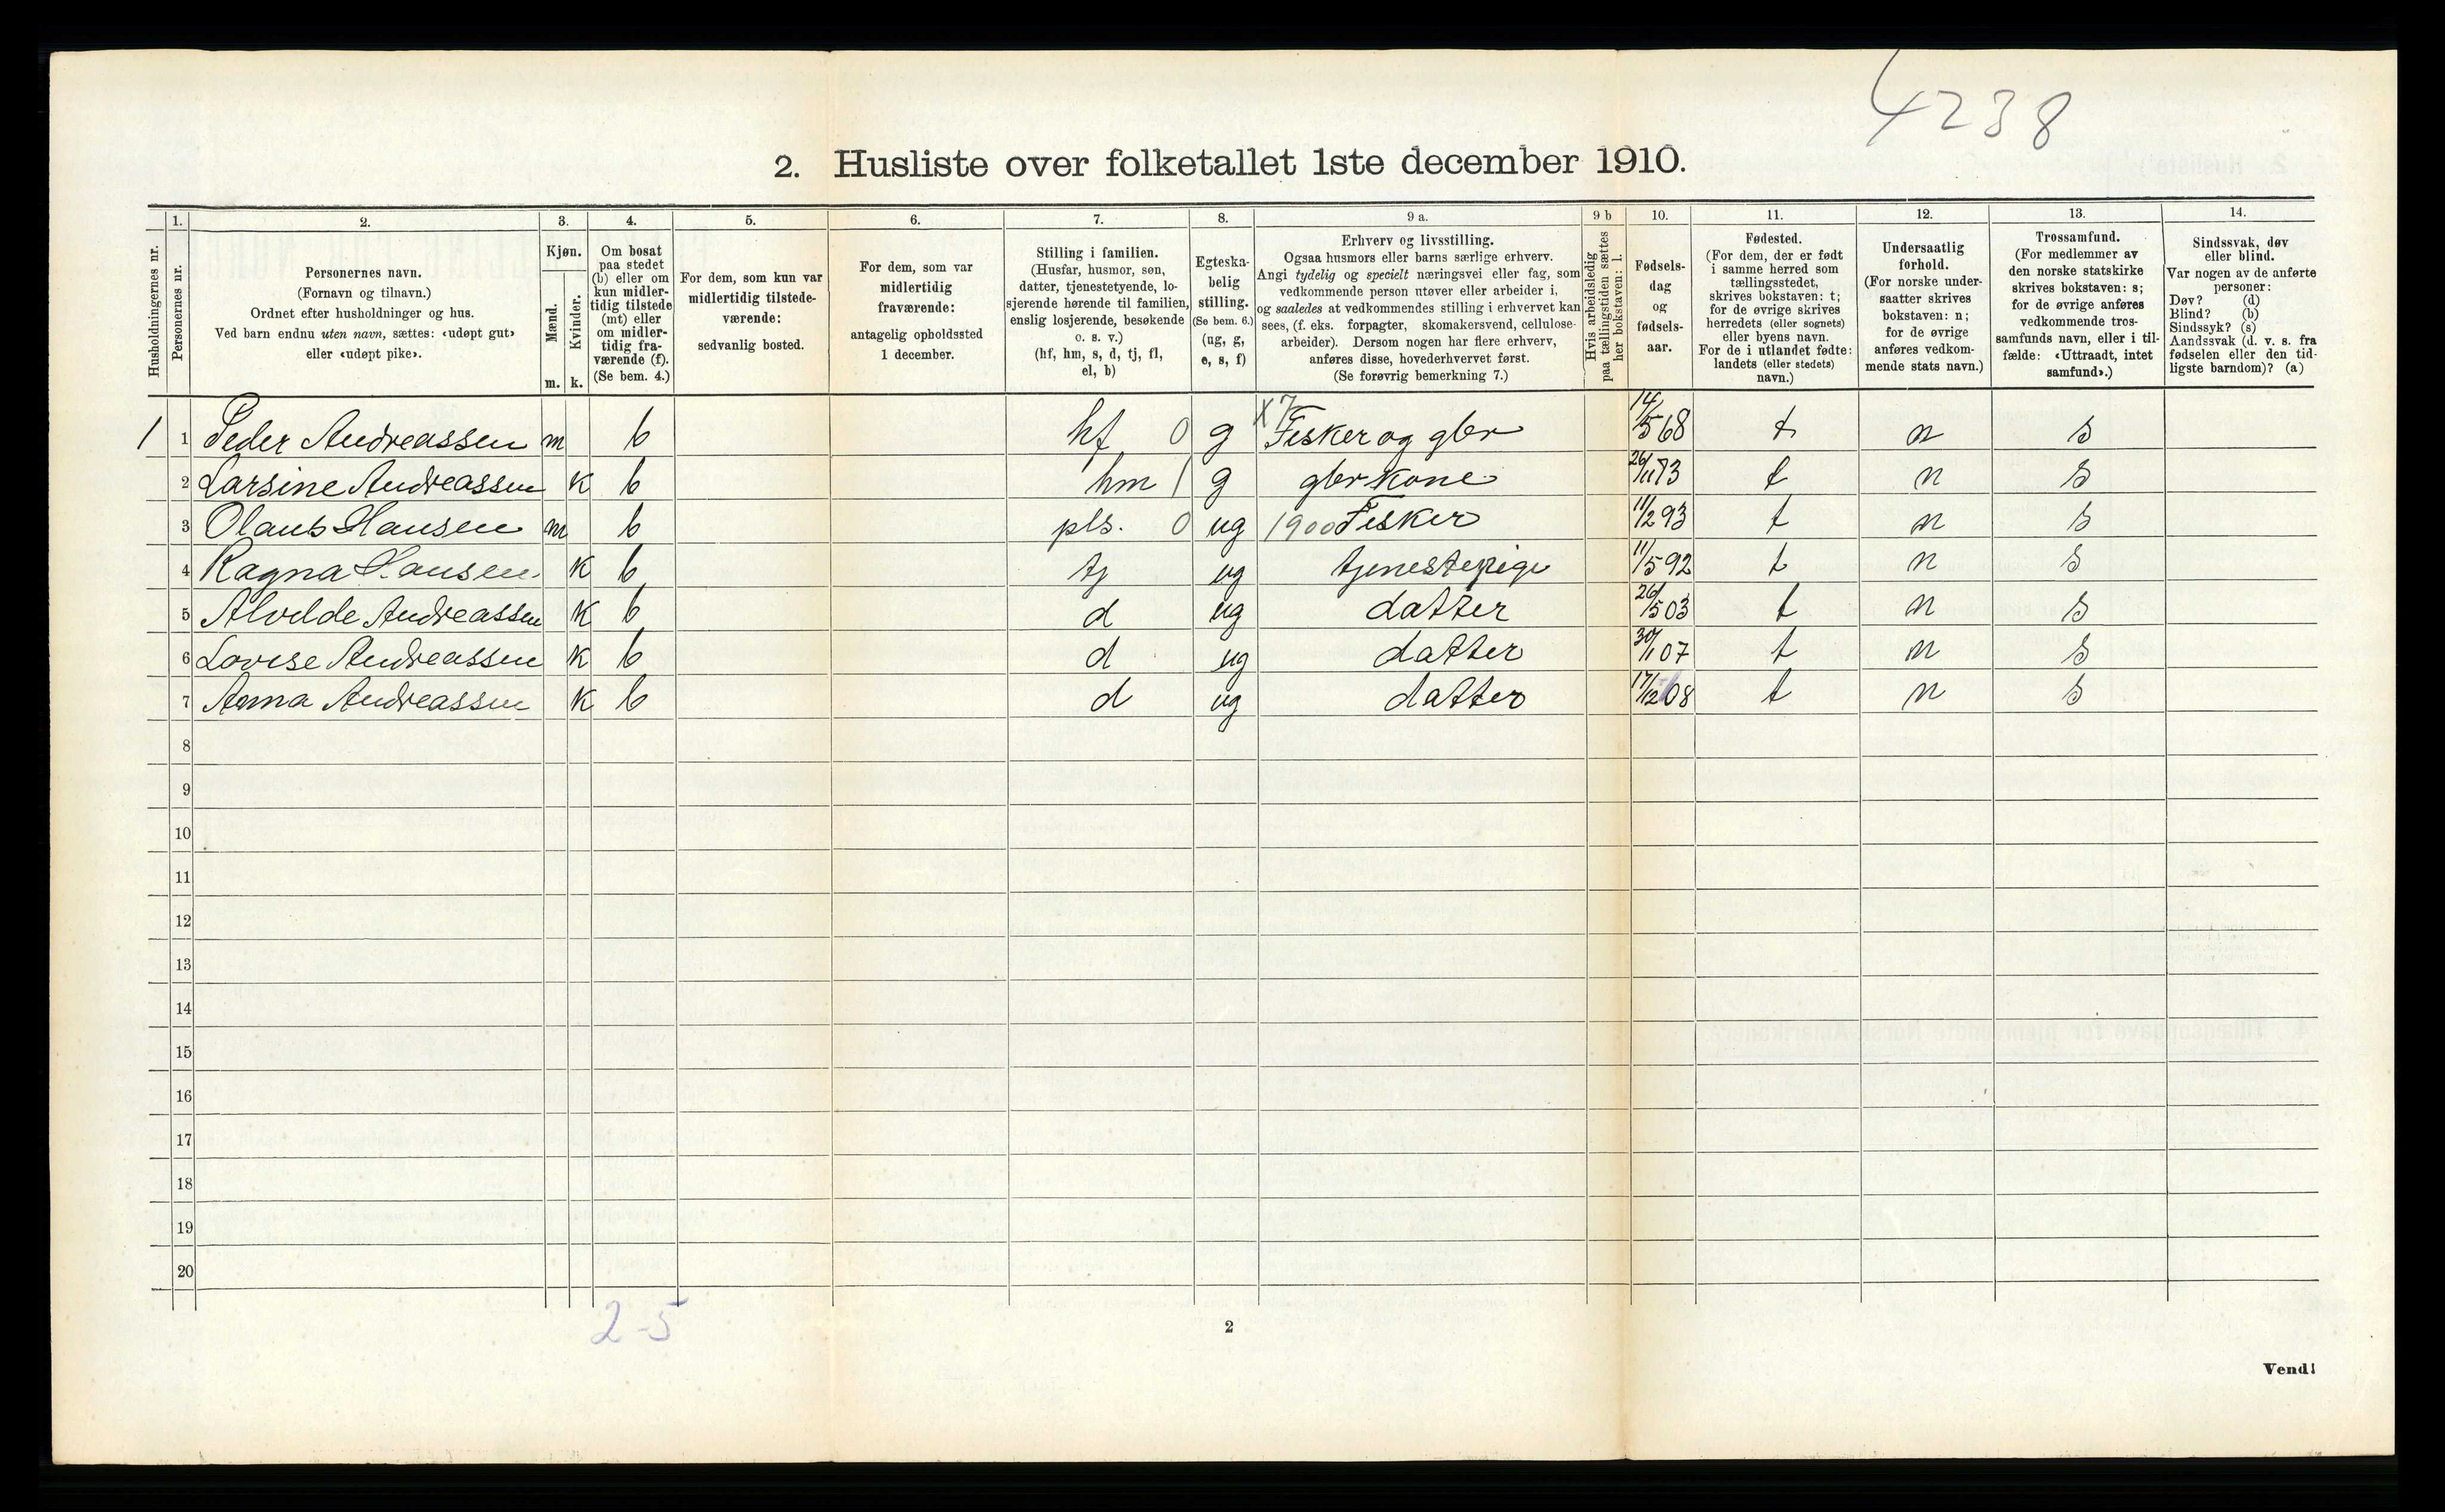 4238
2. Husliste over folketallet 1ste december 1910.
Husholdningernes nr.
1. Personernes nr.
2. Personernes navn.
(Fornavn og tilnavn.)
Ordnet efter husholdninger og hus.
Ved barn endnu uten navn, sættes: «udøpt gut»
eller «udøpt pike».
3. Kjøn.
Mænd. Kvinder.
m. k.
4. Om bosat
paa stedet
(b) eller om
kun midler-
tidig tilstede
(mt) eller
om midler-
tidig fra-
værende (f).
(Se bem. 4.)
5. For dem, som kun var
midlertidig tilstede-
værende:
sedvanlig bosted.
6. For dem, som var
midlertidig
fraværende:
antagelig opholdssted
1 december.
7. Stilling i familien.
(Husfar, husmor, søn,
datter, tjenestetyende, lo-
sjerende hørende til familien,
enslig losjerende, besøkende
o. s. v.)
(hf, hm, s, d, tj, fl,
el, b)
8. Egteska-
belig
stilling.
(Se bem. 6.)
(ug, g,
e, s, f)
9 a. Erhverv og livsstilling.
Ogsaa husmors eller barns særlige erhverv.
Angi tydelig og specielt næringsvei eller fag, som
vedkommende person utøver eller arbeider i,
og saaledes at vedkommendes stilling i erhvervet kan
sees, (f. eks. forpagter, skomakersvend, cellulose-
arbeider). Dersom nogen har flere erhverv,
anføres disse, hovederhvervet først.
(Se forøvrig bemerkning 7.)
9 b Hvis arbeidsledig
paa tællingstiden sættes
her bokstaven: l.
10. Fødsels-
dag
og
fødsels-
aar.
11. Fødested.
(For dem, der er født
i samme herred som
tællingsstedet,
skrives bokstaven: t;
for de øvrige skrives
herredets (eller sognets)
eller byens navn.
For de i utlandet fødte:
landets (eller stedets)
navn.)
12. Undersaatlig
forhold.
(For norske under-
saatter skrives
bokstaven: n;
for de øvrige
anføres vedkom-
mende stats navn.)
13. Trossamfund.
(For medlemmer av
den norske statskirke
skrives bokstaven: s;
for de øvrige anføres
vedkommende tros-
samfunds navn, eller i til-
fælde: «Uttraadt, intet
samfund».)
14. Sindssvak, døv
eller blind.
Var nogen av de anførte
personer:
Døv? (d)
Blind? (b)
Sindssyk? (s)
Aandssvak (d. v. s. fra
fødselen eller den tid-
ligste barndom)? (a)
1 1 Peder Andreassen m b hf 0 g x7 Fisker og gbr 14/5 68 t n s
2 Larsine Andreassen k b hm 1 g gbr kone 26/11 73 t n s
3 Olaus Hansen m b pls. 0 ug 1900 Fisker 11/2 93 t n s
4 Ragna Hansen k b tj ug tjenestepige 11/5 92 t n s
5 Alvilde Andreassen k b d ug datter 26/5 03 t n s
6 Lovise Andreassen k b d ug datter 30/1 07 t n s
7 Anna Andreassen k b d ug datter 17/12 08 t n s
8
9
10
11
12
13
14
15
16
17
18
19
20
2-5
2
Vend!